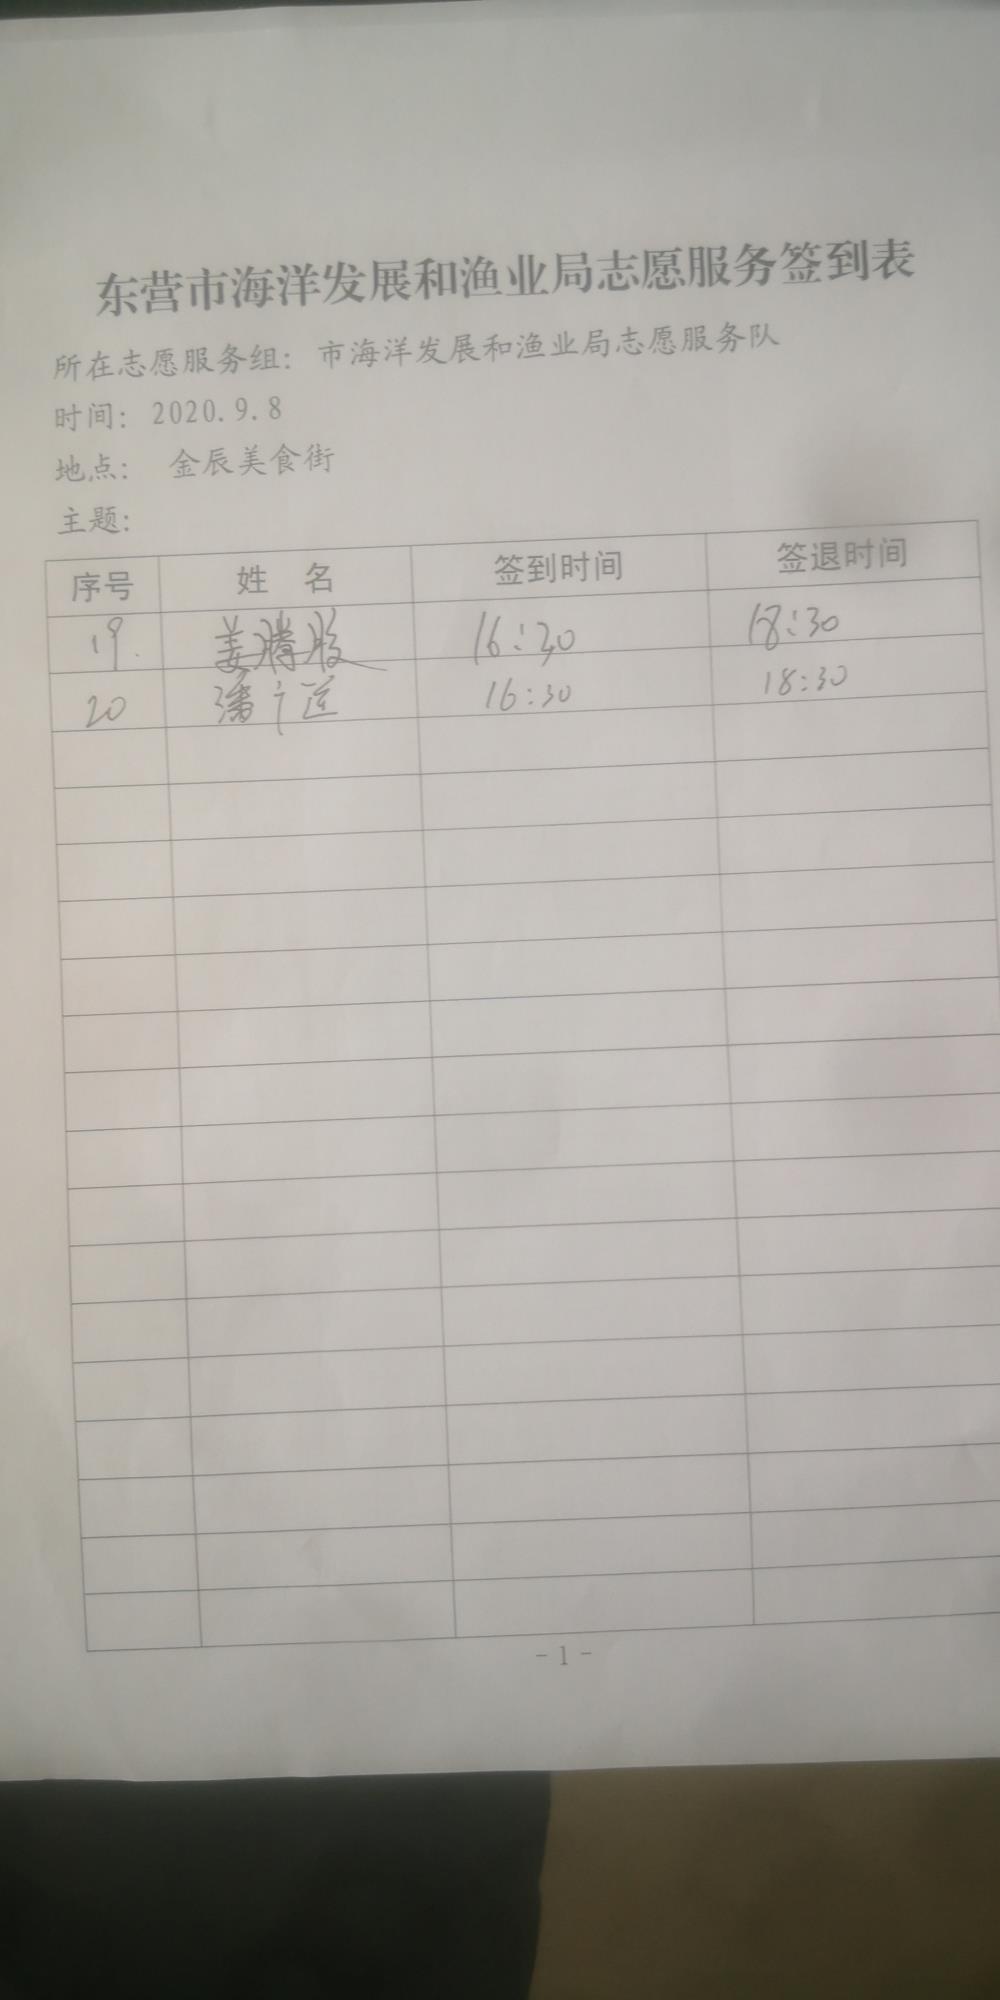 东营市海洋发展和渔业局志愿服务签到表
所在志愿服务组: 市海洋发展和渔业局志愿服务队
时间: 2020.9.8
地点: 金辰美食街
主题:
序号 姓 名 签到时间 签退时间
19. 姜腾 16:30 18:30
20 潘广 16:30 18:30
- 1 -